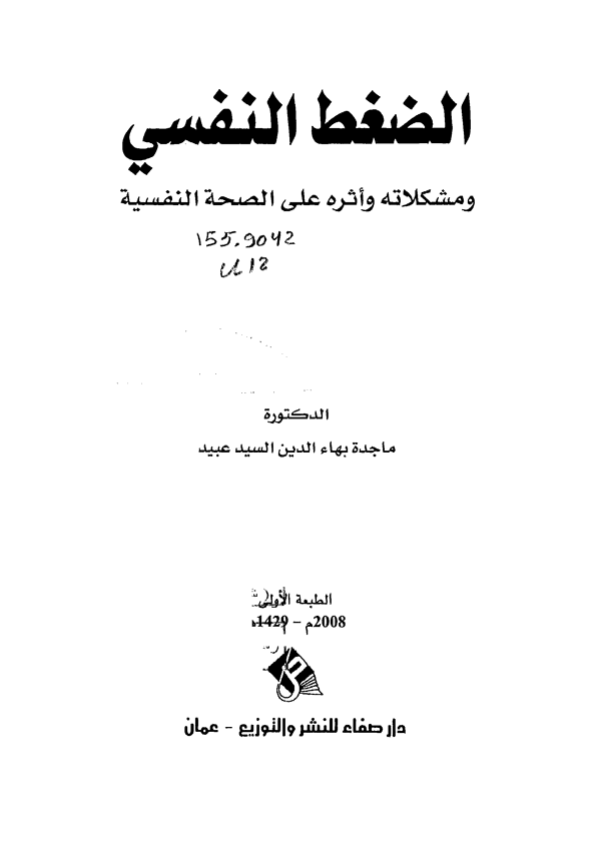 الضغط النفسي
ومشكلاته وأثره على الصحة النفسية
155.9042
U12
الدكتورة
ماجدة بهاء الدين السيد عبيد
الطبعة الأولى
2008م - 1429هـ
دار صفاء للنشر والتوزيع - عمان